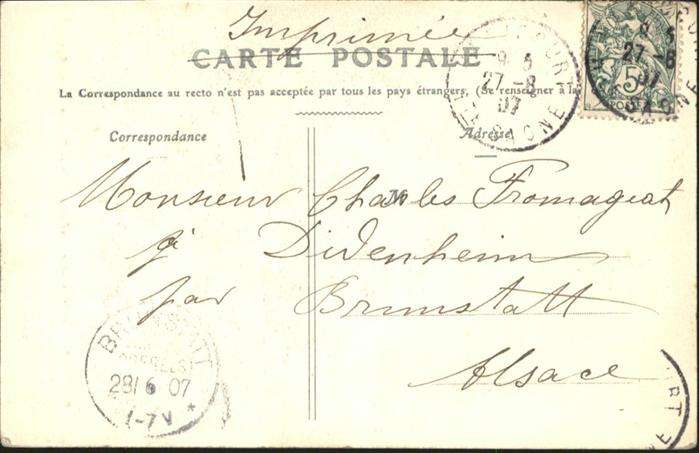 Imprimée
CARTE POSTALE
La Correspondance au recto n'est pas acceptée par tous les pays étrangers, (Se renseigner à la
Correspondance
Adresse
Monsieur Charles Fromageat
M
à Didenheim
par Brunstatt
Alsace
27-8
07
5
27-8
07
POSTES
28/ 6 07